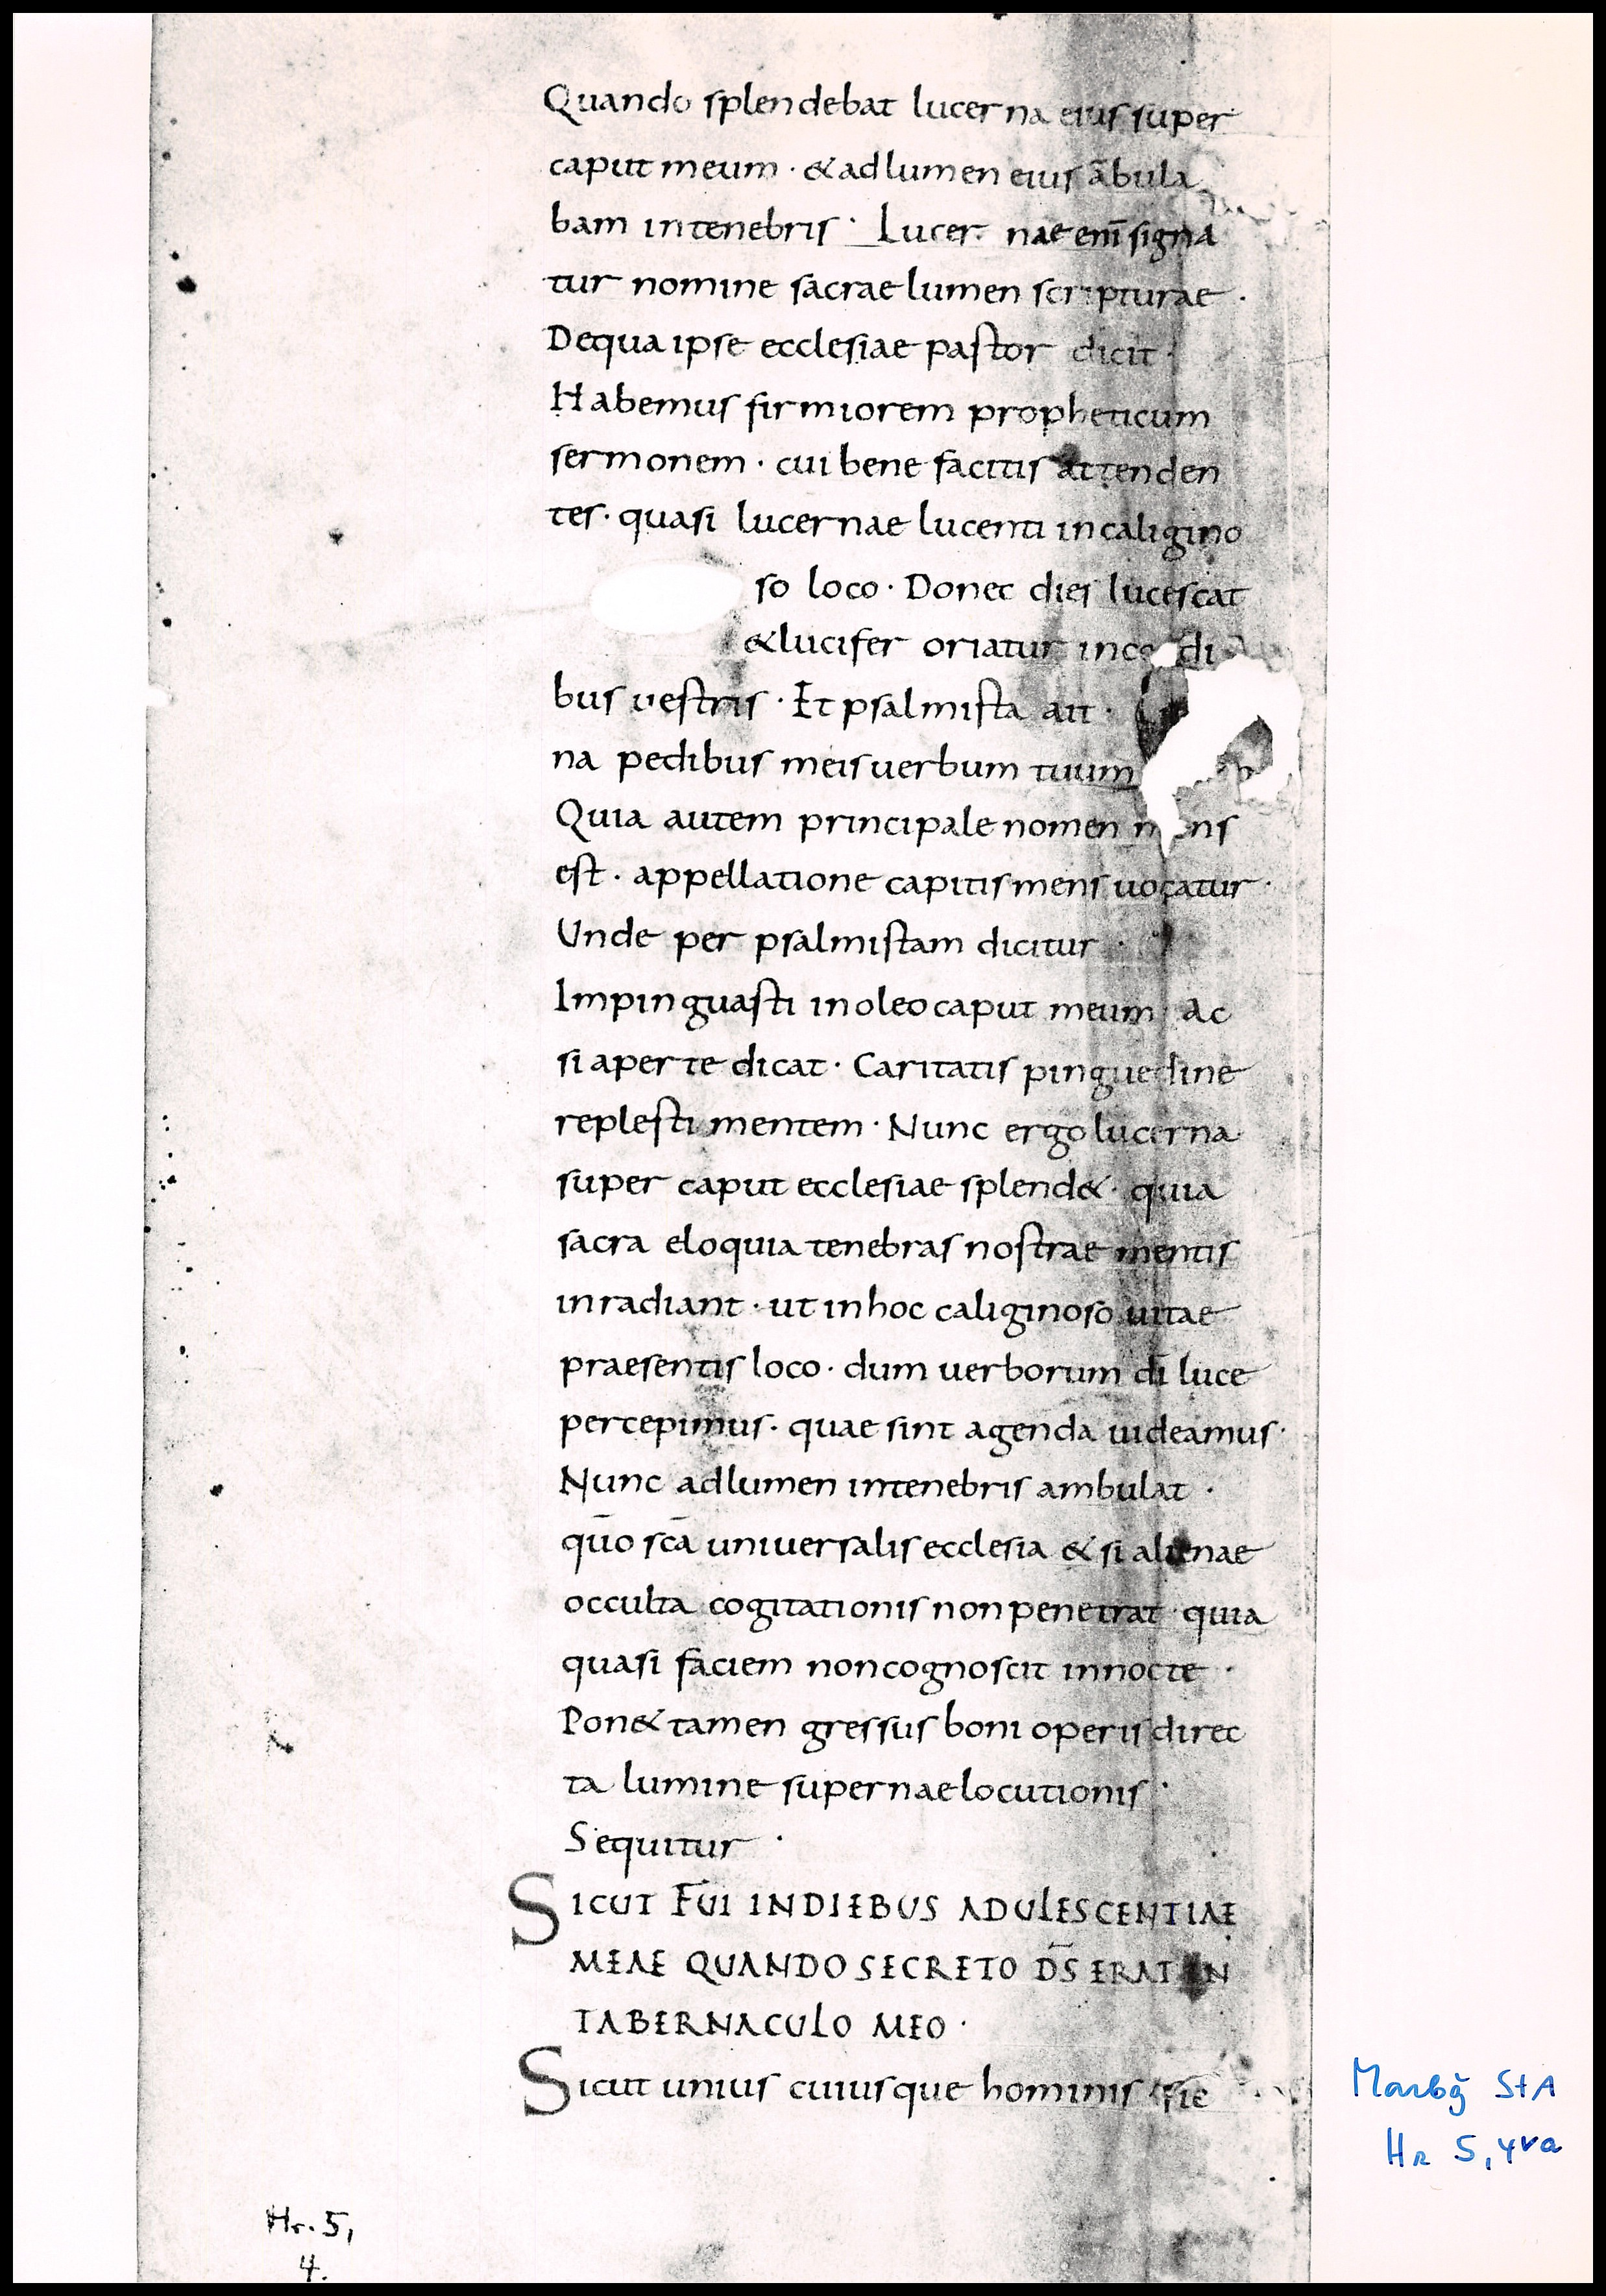 Quando splendebat lucerna eius super
caput meum · & ad lumen eius ābula
bam in tenebris · Lucernae eni͞ signa
tur nomine sacrae lumen scripturae ·
De qua ipse ecclesiae pastor dicit ·
Habemus firmiorem propheticum
sermonem · cui bene facitis attenden
tes · quasi lucernae lucenti in caligino
so loco · Donec dies lucescat
& lucifer oriatur in co di
bus vestris · Et psalmista ait ·
na pedibus meis verbum tuum
Quia autem principale nomen m ns
est · appellatione capitis mens uocatur ·
Unde per psalmistam dicitur ·
Impinguasti in oleo caput meum · Ac
si aperte dicat · Caritatis pinguedine
replesti mentem · Nunc ergo lucerna
super caput ecclesiae splend& · quia
sacra eloquia tenebras nostrae mentis
inradiant · ut in hoc caliginoso uitae
praesentis loco · dum verborum di͞ luce
percepimus · quae sint agenda uideamus ·
Nunc ad lumen in tenebris ambulat ·
quo͞ sca͞ universalis ecclesia & si alienae
occulta cogitationis non penetrat · quia
quasi faciem non cognoscit in nocte ·
Pon& tamen gressus boni operis direc
ta lumine supernae locutionis ·
Sequitur ·
SICUT FUI IN DIEBUS ADULESCENTIAE
MEAE QUANDO SECRETO DS͞ ERAT IN
TABERNACULO MEO ·
Sicut unius cuiusque hominis sic
Marbg StA
Hr 5, 4va
Hr. 5,
4.